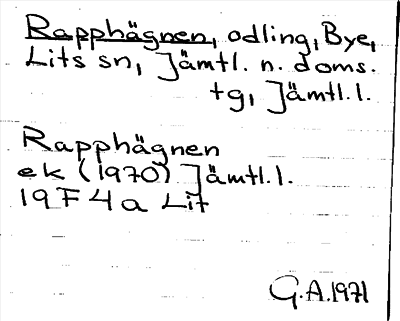 Rapphägnen, odling, Bye,
Lits sn, Jämtl. n. doms.
tg, Jämtl. l.
Rapphägnen
ek (1970) Jämtl. l.
19F4a Lit
G.A. 1971